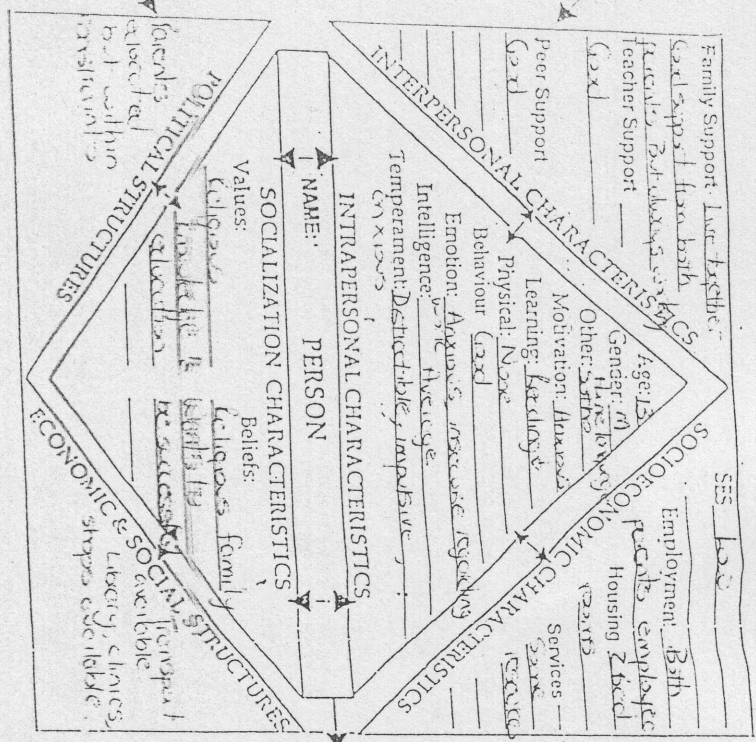 Family Support: Live together
Good support from both
parents. But always
Teacher Support
Good
Peer Support
Good
INTERPERSONAL CHARACTERISTICS
SES Low
Employment Both
parents employed
Housing 2 bed
rooms
Services
Some
resources
SOCIOECONOMIC CHARACTERISTICS
Age: 13
Gender: M
Other: Home language
Sotho
Motivation: Anxious
Learning: Reading
Physical: None
Behaviour Good
Emotion: Anxious, insecure regarding
work
Intelligence: Average
Temperament: Distractible, impulsive,
anxious
INTRAPERSONAL CHARACTERISTICS
NAME: PERSON
SOCIALIZATION CHARACTERISTICS
Values:
religious
knowledge is
education
Beliefs:
religious family
wants to
be successful
POLITICAL STRUCTURES
Parents
educated
but within
constraints
ECONOMIC & SOCIAL STRUCTURES
Transport
available
Library, clinics,
shops available.